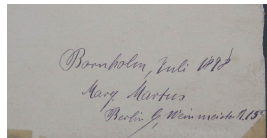 Bornholm, Juli 1898
Mary Martus
Berlin G, Weinmeisterst. 15